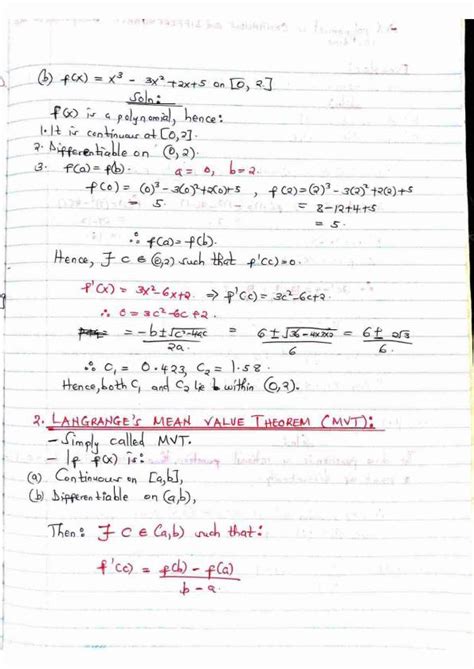 (b) f(x) = x³ - 3x² + 2x + 5 on [0, 2.]
Soln:
f(x) is a polynomial, hence:
1. It is continuous at [0,2].
2. Differentiable on (0,2).
3. f(a) = f(b). a = 0, b = 2.
f(0) = (0)³ - 3(0)² + 2(0) + 5 , f(2) = (2)³ - 3(2)² + 2(2) + 5
= 5. = 8 - 12 + 4 + 5
= 5.
∴ f(a) = f(b).
Hence, ∃ c ∈ (0,2) such that f'(c) = 0.
f'(x) = 3x² - 6x + 2 ⇒ f'(c) = 3c² - 6c + 2.
∴ 0 = 3c² - 6c + 2.
= -b ± √(c² - 4ac) / 2a. = 6 ± √(36 - 4x3x2) / 6 = 6 ± 2√3 / 6.
∴ C₁ = 0.423, C₂ = 1.58.
Hence, both C₁ and C₂ lie within (0,2).
2. LANGRANGE'S MEAN VALUE THEOREM (MVT):
- Simply called MVT.
- If f(x) is:
(a) Continuous on [a,b],
(b) Differentiable on (a,b),
Then: ∃ C ∈ (a,b) such that:
f'(c) = f(b) - f(a) / b - a